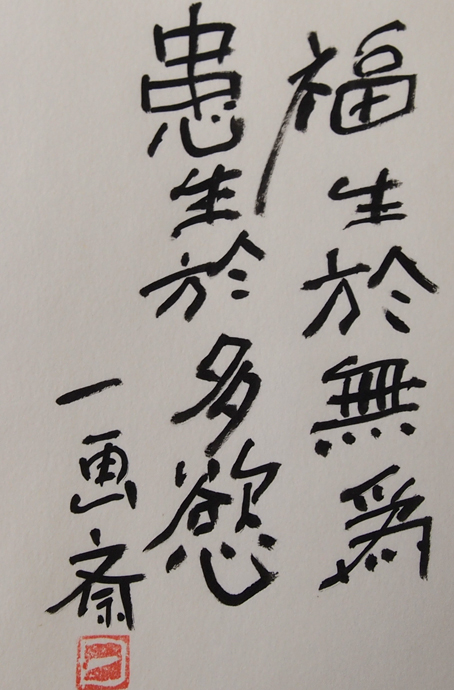 福生於無為
患生於多慾
一画斎